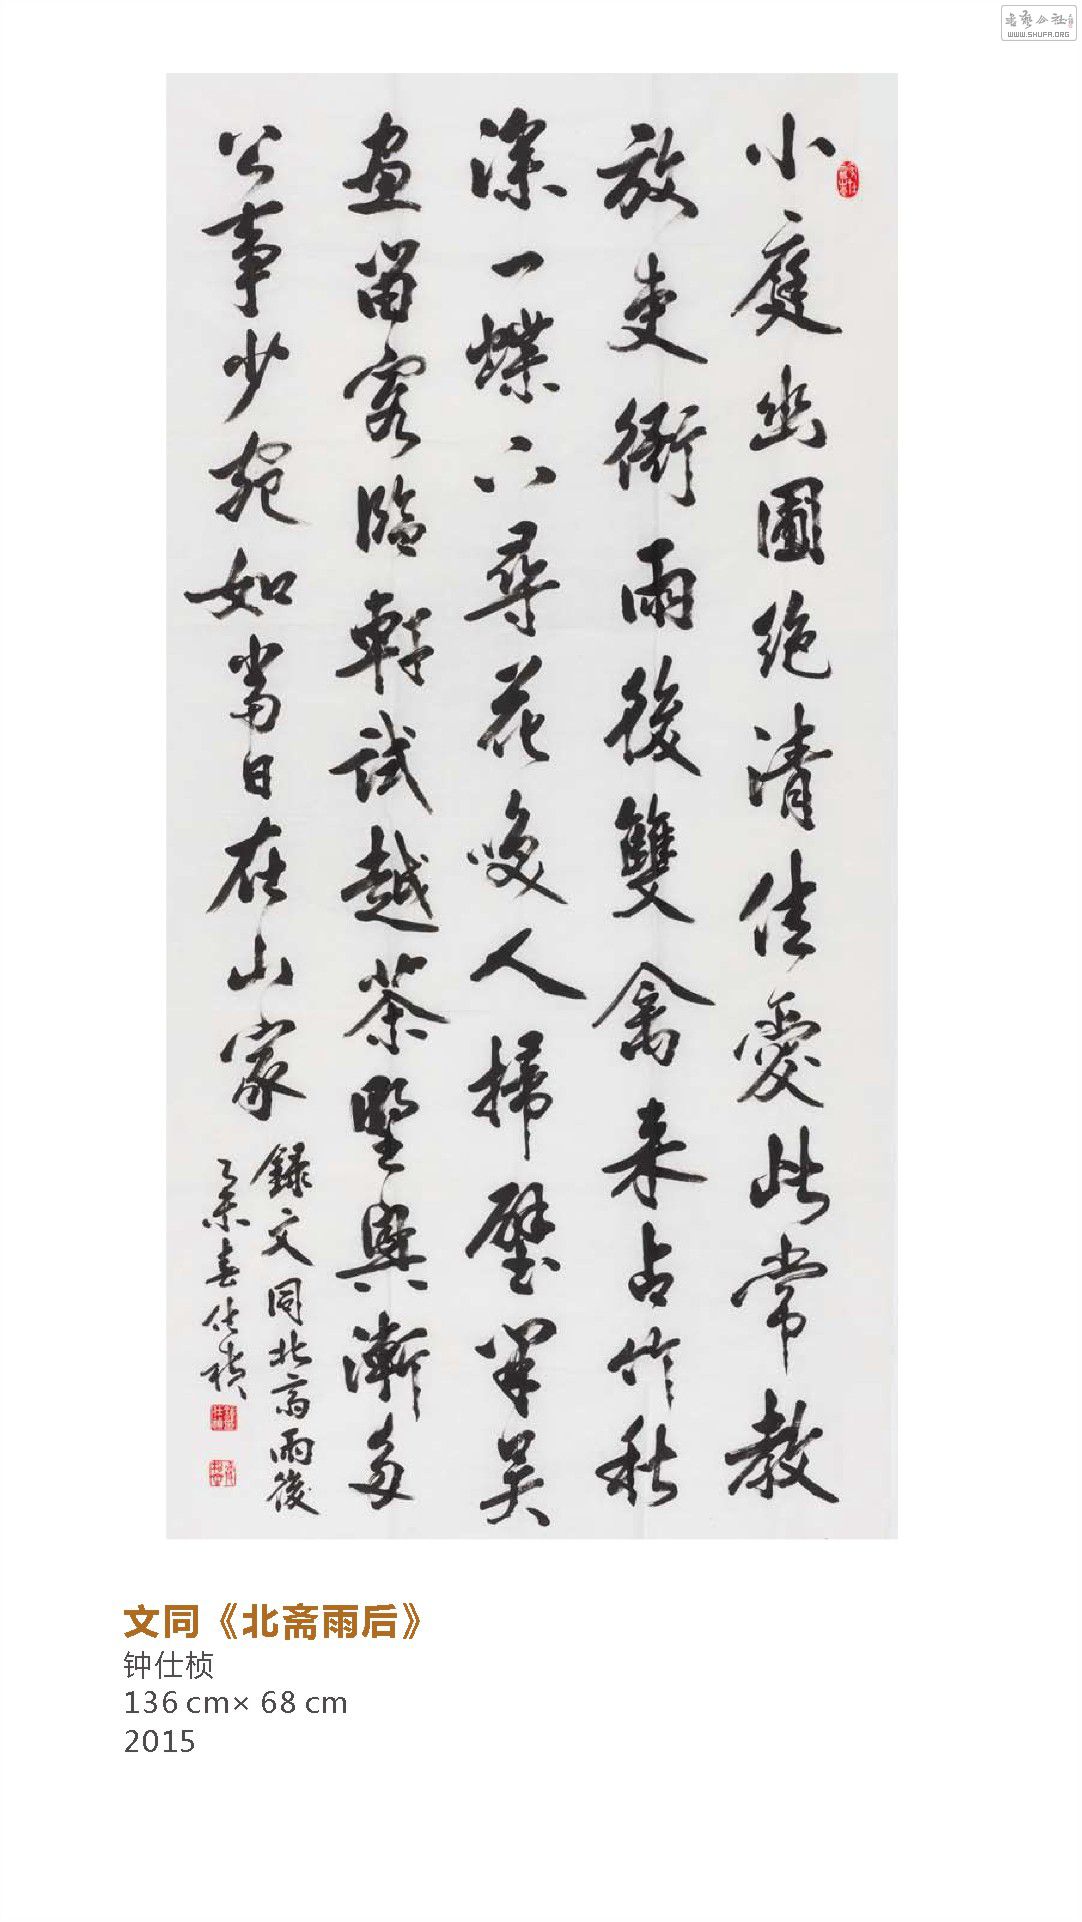 書藝公社
WWW.SHUFA.ORG
小庭幽圃绝清佳愛此常教
放吏衙雨後雙禽来占竹秋
深一蝶下尋花唤人掃壁開吴
畫留客臨軒試越茶墅興漸多
公事少宛如當日在山家
録文同北齋雨後
乙未春仕楨
文同《北斋雨后》
钟仕桢
136 cm× 68 cm
2015